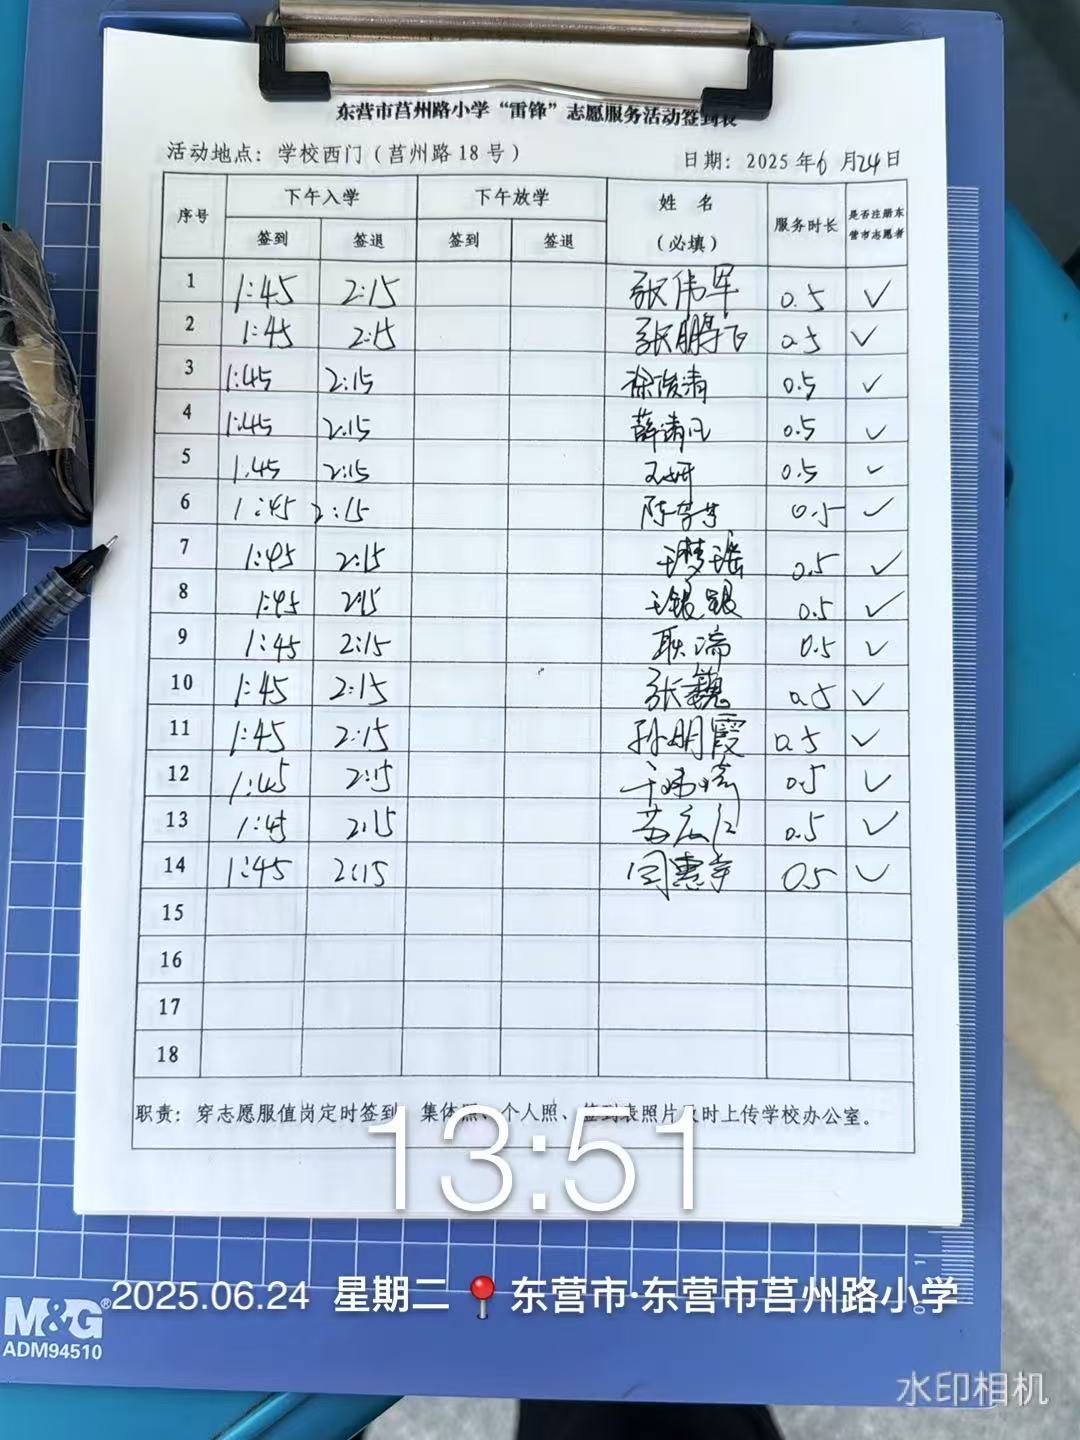 东营市莒州路小学“雷锋”志愿服务活动签到表
活动地点：学校西门（莒州路18号） 日期：2025年6月24日
序号 下午入学 下午放学 姓 名 （必填） 服务时长 是否注册东营市志愿者
签到 签退 签到 签退
1 1:45 2:15 张伟军 0.5 ✓
2 1:45 2:15 张鹏飞 0.5 ✓
3 1:45 2:15 徐俊清 0.5 ✓
4 1:45 2:15 薛清凡 0.5 ✓
5 1:45 2:15 王妍 0.5 ✓
6 1:45 2:15 陈 0.5 ✓
7 1:45 2:15 王梦瑶 0.5 ✓
8 1:45 2:15 王银银 0.5 ✓
9 1:45 2:15 耿瑞 0.5 ✓
10 1:45 2:15 张巍 0.5 ✓
11 1:45 2:15 孙明霞 0.5 ✓
12 1:45 2:15 0.5 ✓
13 1:45 2:15 0.5 ✓
14 1:45 2:15 0.5 ✓
15
16
17
18
职责：穿志愿服值岗定时签到 集体照、个人照、签到表照片及时上传学校办公室。
13:51
2025.06.24 星期二 东营市·东营市莒州路小学
M&G®
ADM94510
水印相机